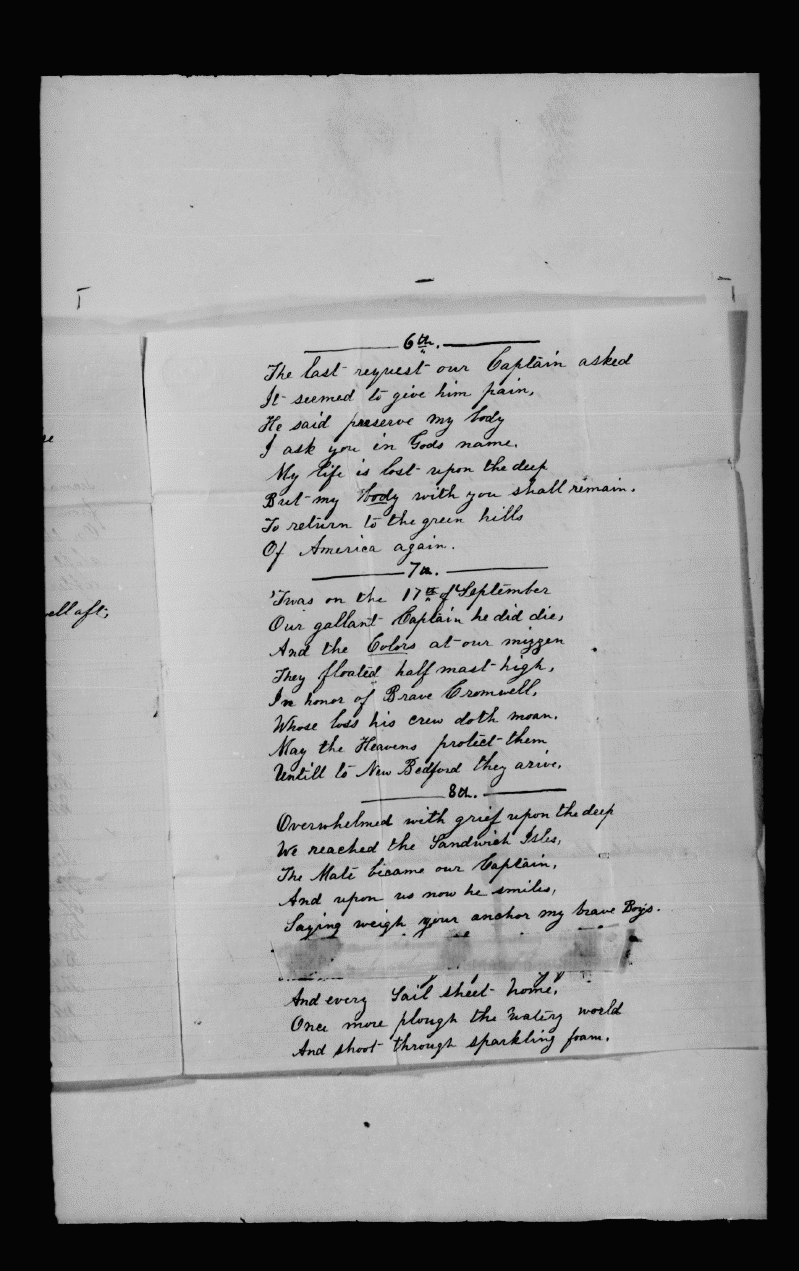 6th.
The last request our Captain asked
It seemed to give him pain,
He said preserve my body
I ask you in Gods name.
My life is lost upon the deep
But my body with you shall remain.
To return to the green hills
Of America again.
7th.
'Twas on the 17th of September
Our gallant Captain he did die,
And the Colors at our mizzen
They floated half mast high,
In honor of Brave Cromwell,
Whose loss his crew doth moan.
May the Heavens protect them
Untill to New Bedford they arive.
8th.
Overwhelmed with grief upon the deep
We reached the Sandwich Isles,
The Mate became our Captain,
And upon us now he smiles,
Saying weigh your anchor my brave Boys.
And every Sail sheet home,
Once more plough the watery world
And shoot through sparkling foam.
aft;